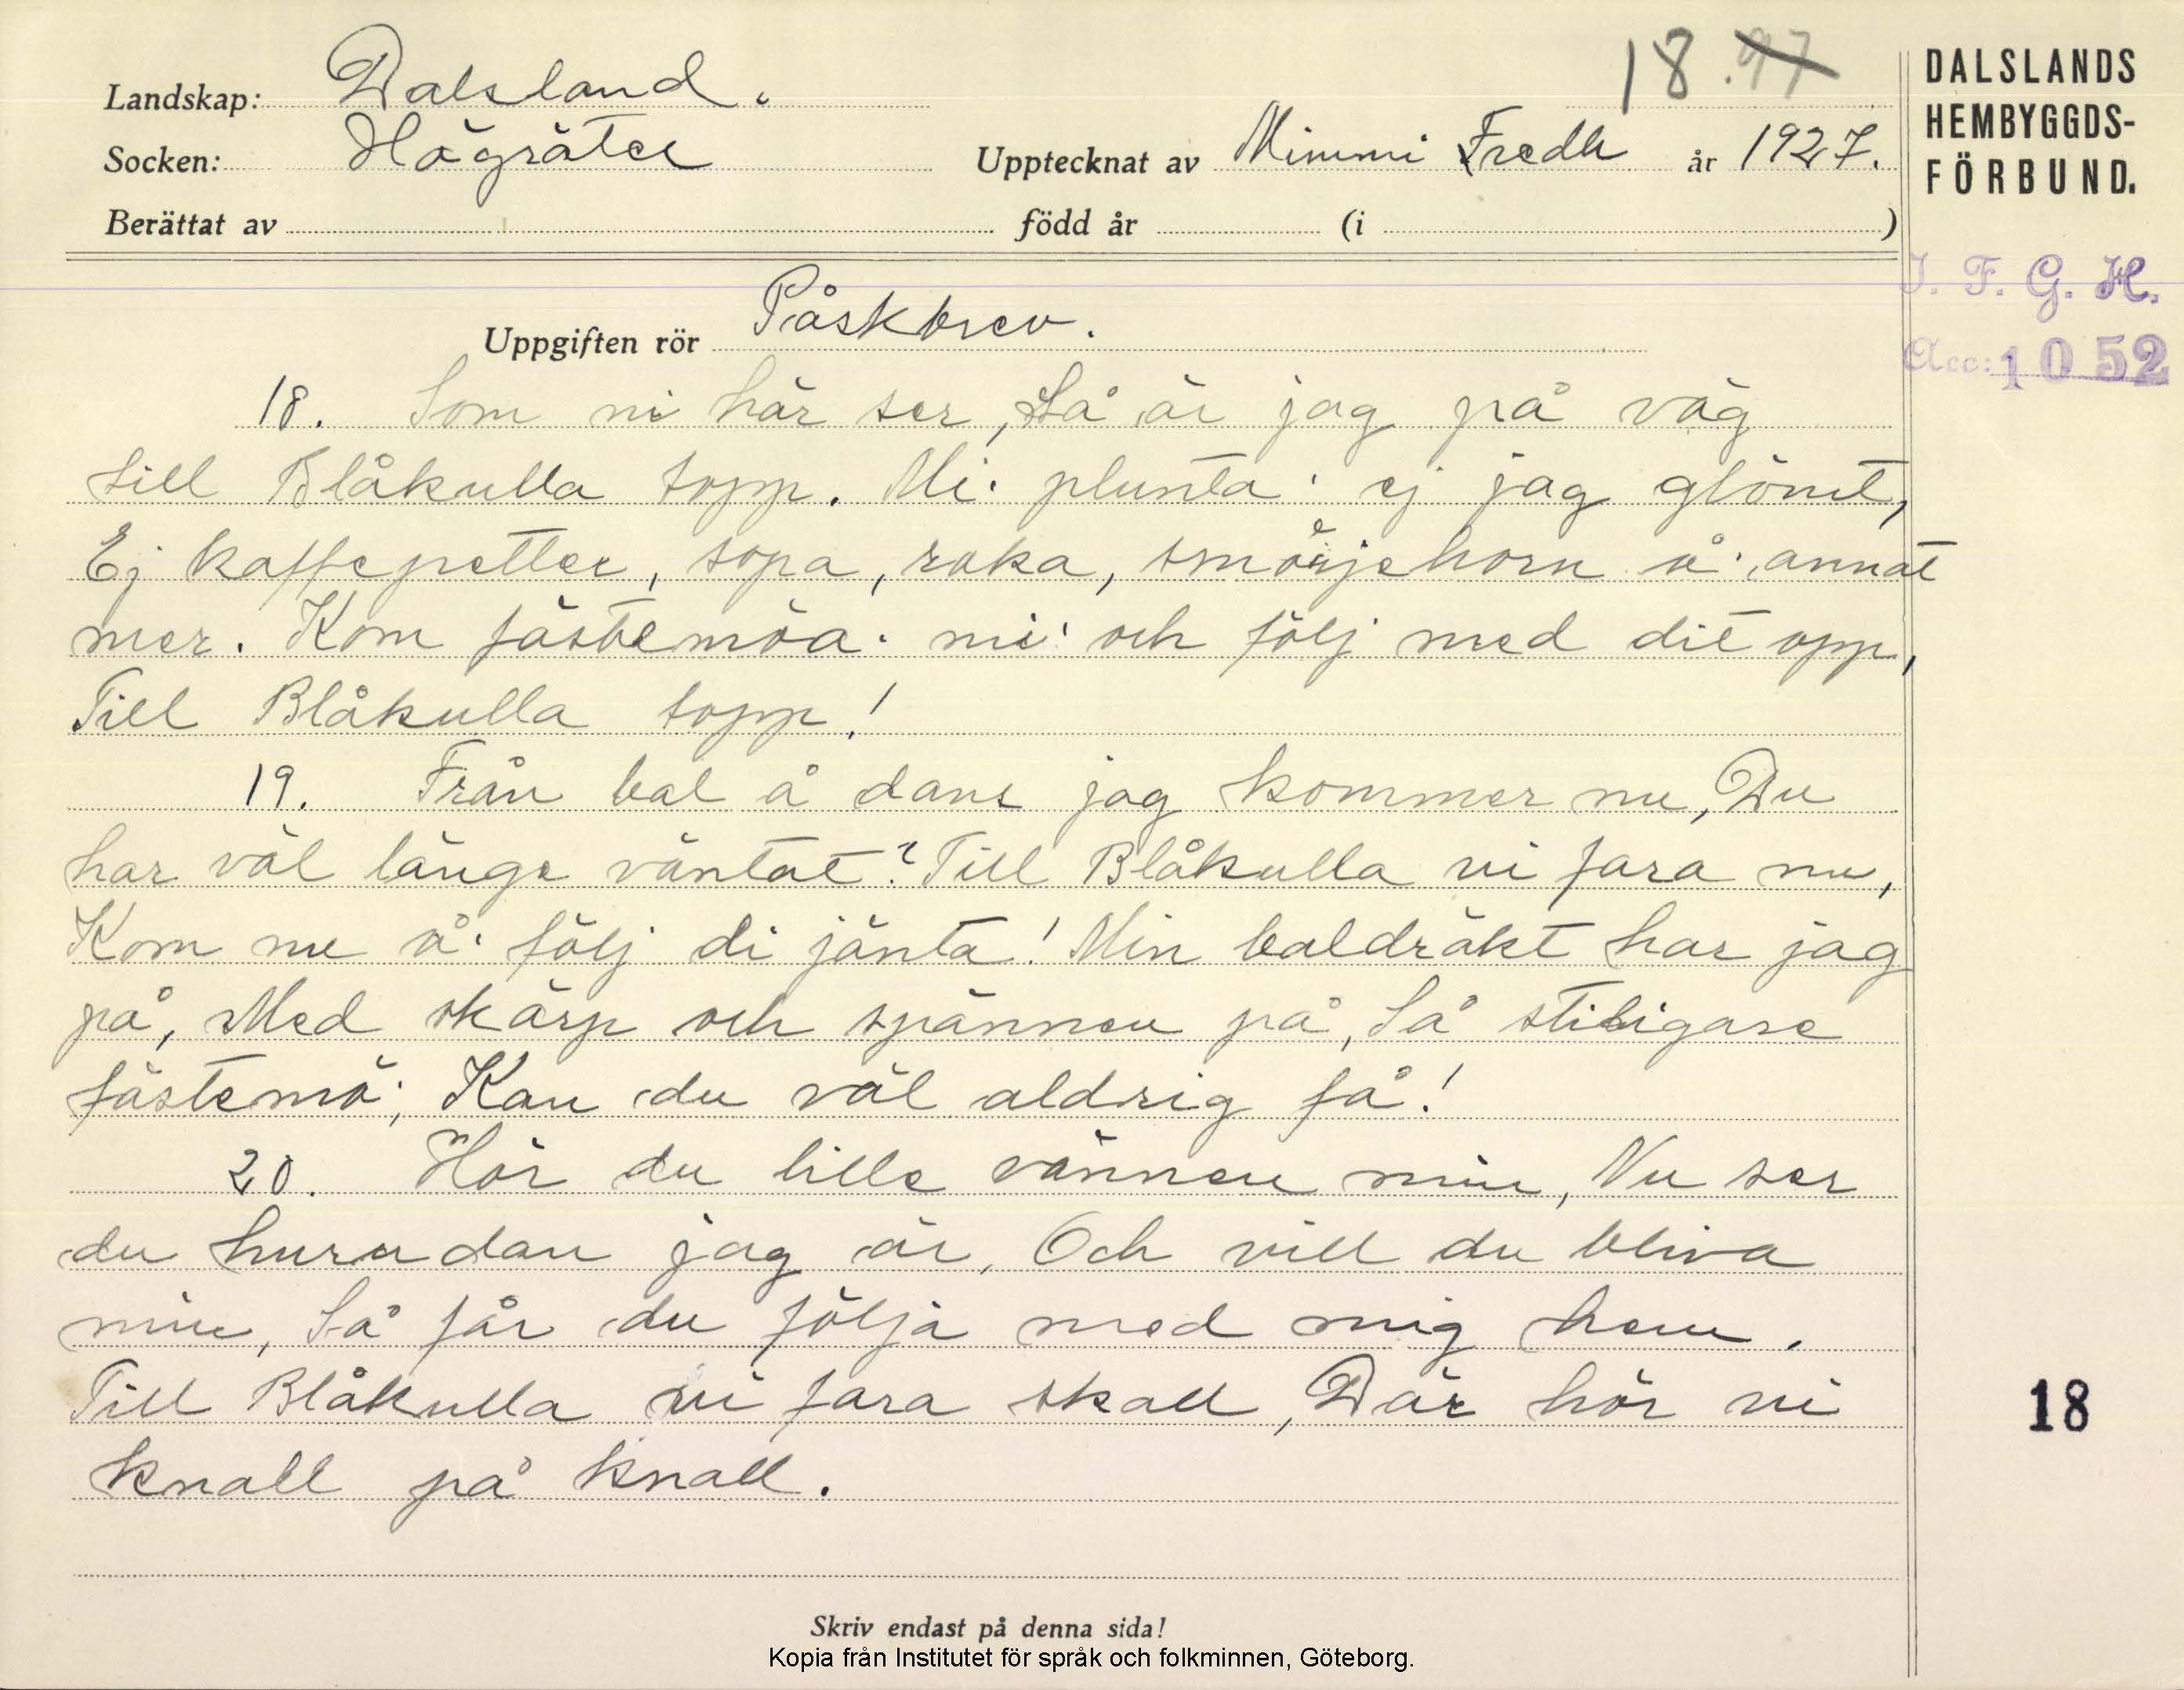 18. 97
Landskap: Dalsland.
DALSLANDS
HEMBYGGDS-
FÖRBUND.
Socken: Högsäter
Upptecknat av Mimmi Fredh år 1927.
Berättat av född år (i )
I. F. G. H.
Acc: 1052
Uppgiften rör Påskbrev.
18. Som ni här ser, Så är jag på väg
till Blåkulla topp. Mi' plunta' ej jag glömt,
Ej kaffepetter, sopa, raka, smörjehorn å' annat
mer. Kom fästemöa' mi' och följ med dit opp,
Till Blåkulla topp!
19. Från bal å dans jag kommer nu, Du
har väl länge väntat? Till Blåkulla vi fara nu,
Kom nu å' följ di jänta! Min baldräkt har jag
på, Med skärp och spännen på, Så stiligare
fästemö', Kan du väl aldrig få!
20. Hör du lille vännen min, Nu ser
du hurudan jag är, Och vill du bliva
min, Så får du följa med mig hem.
Till Blåkulla vi fara skall, Där hör vi
knall på knall.
18
Skriv endast på denna sida!
Kopia från Institutet för språk och folkminnen, Göteborg.